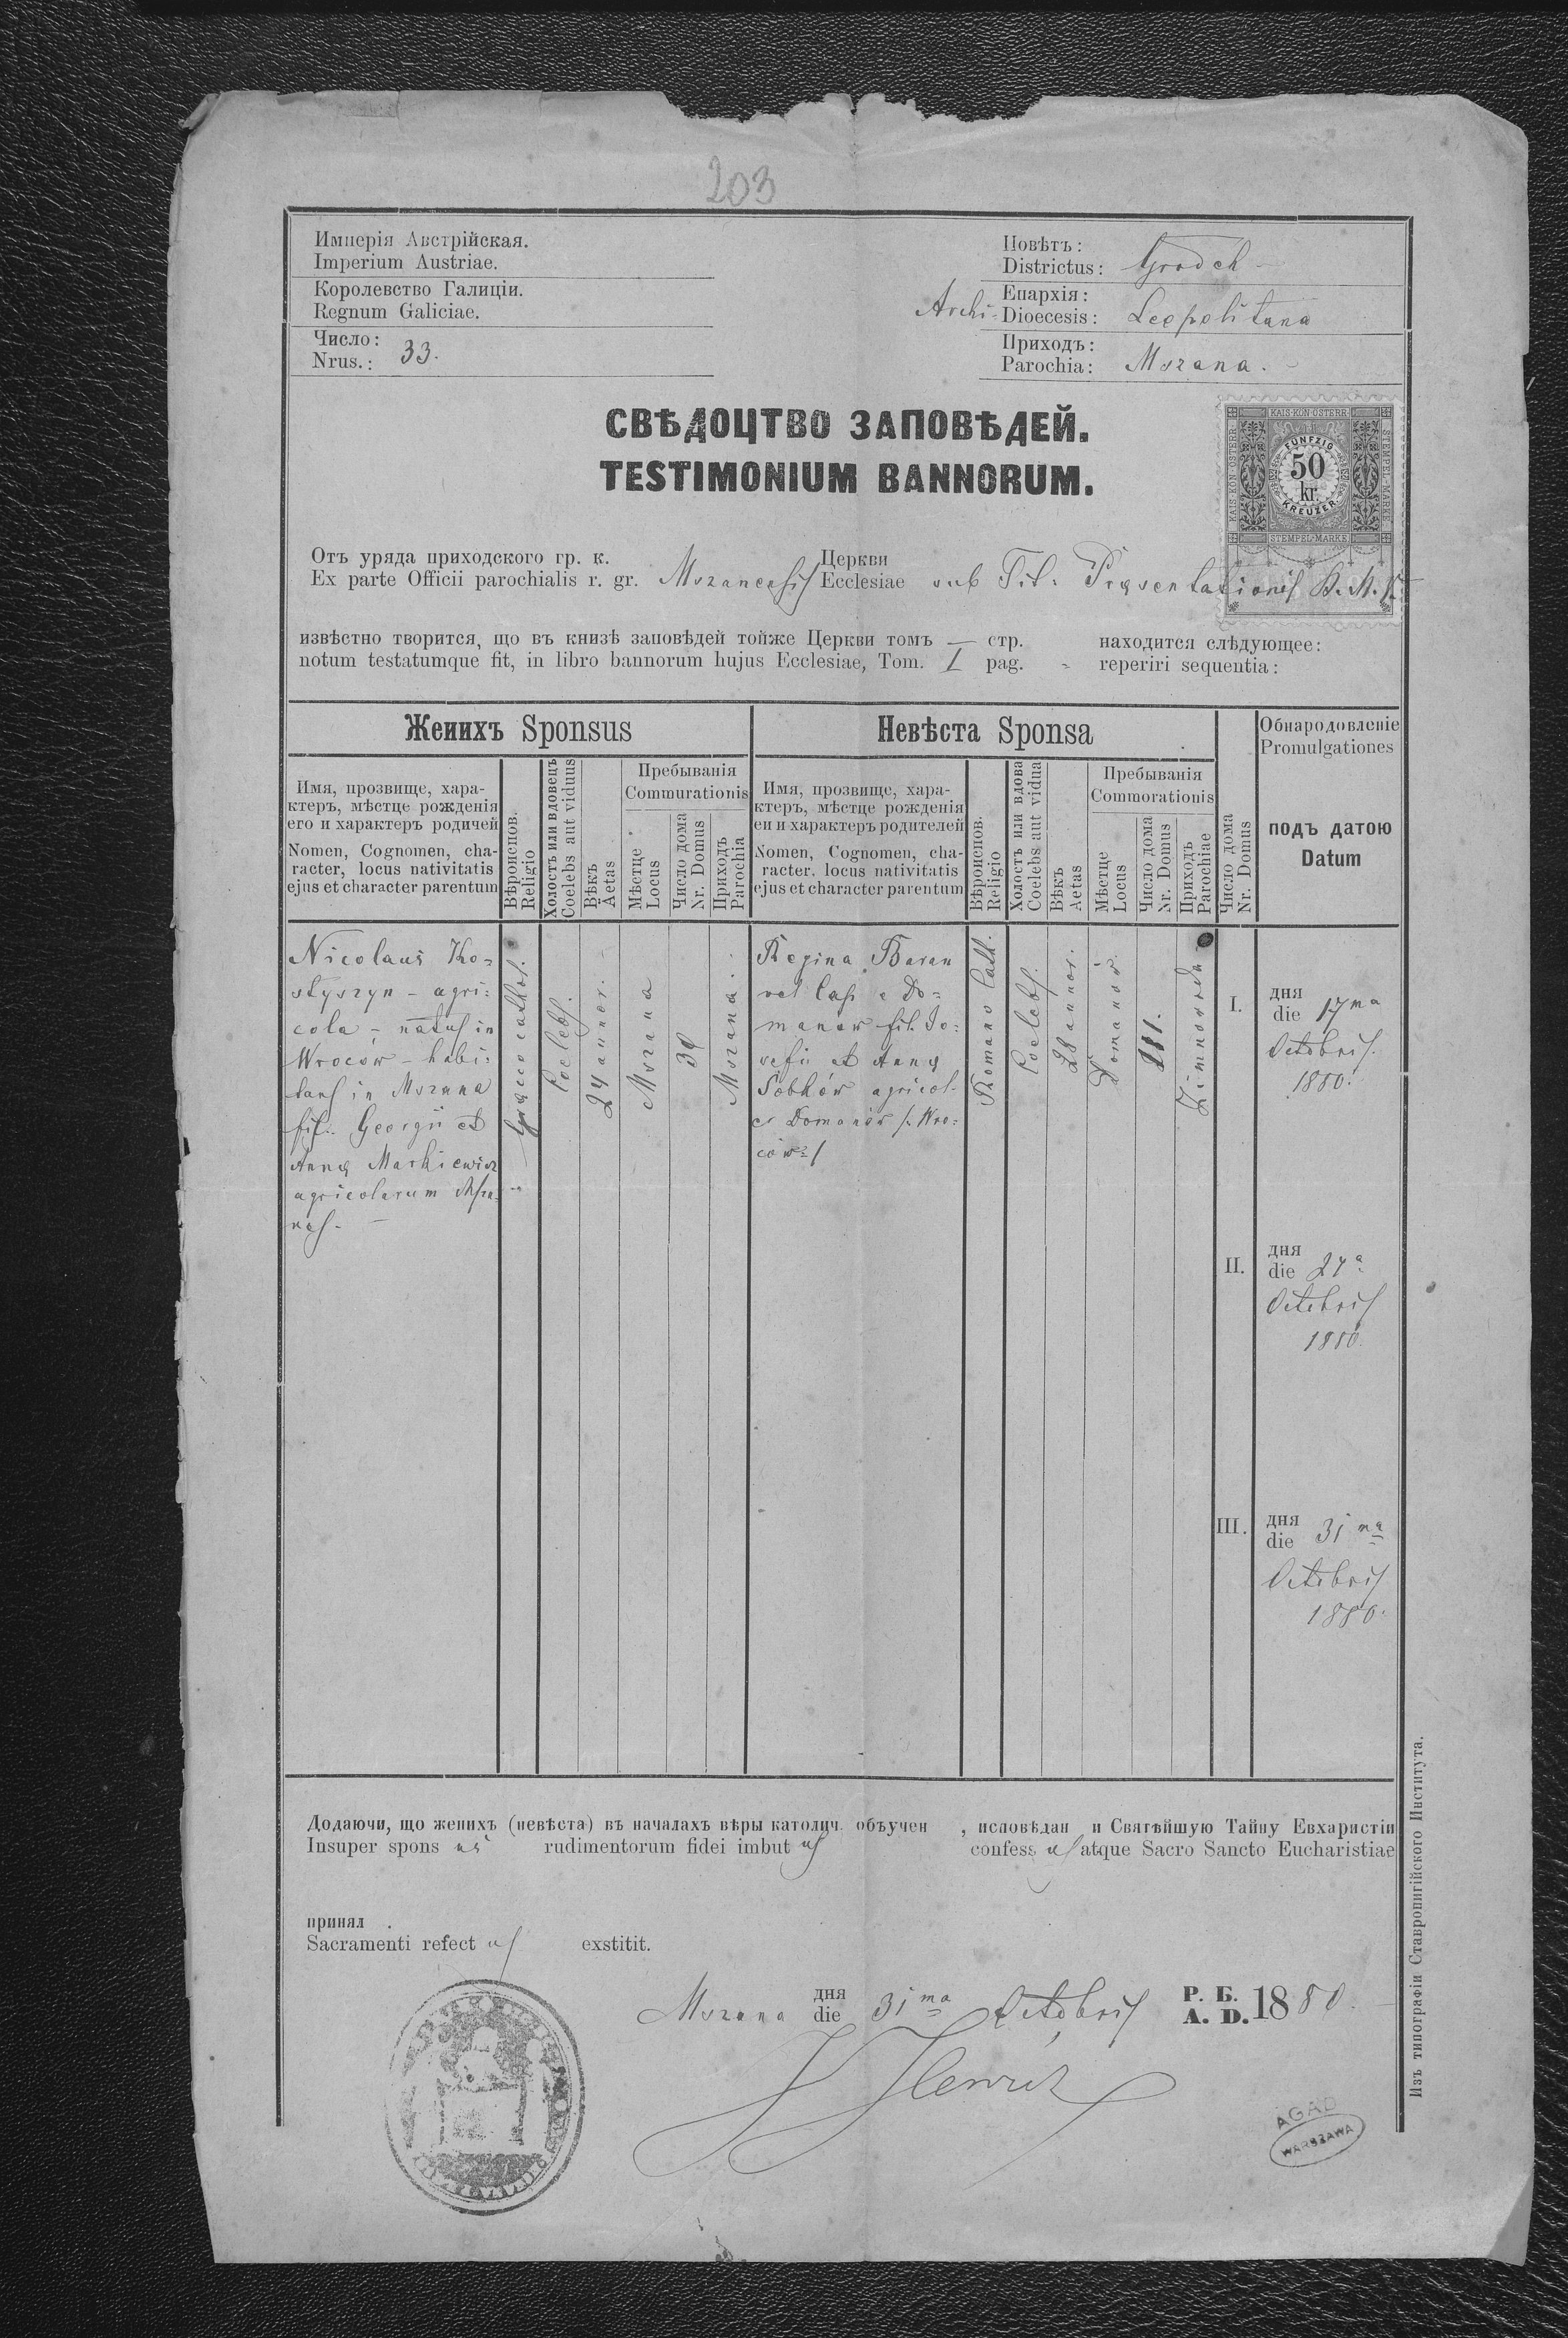 203
Имперія Австрійская.
Imperium Austriae.
Королевство Галиціи.
Regnum Galiciae.
Число:
Nrus.: 33.
Повѣтъ:
Districtus: Grodek
Епархія:
Archi- Dioecesis: Leopolitana
Приходъ:
Parochia: Mszana.
СВѢДОЦТВО ЗАПОВѢДЕЙ.
TESTIMONIUM BANNORUM.
KAIS·KÖN·ÖSTERR·
KAIS·KÖN·ÖSTERR·
STEMPEL-MARKE
FÜNFZIG
50
kr
KREUZER
STEMPEL-MARKE
Отъ уряда приходского гр. к. Церкви
Ex parte Officii parochialis r. gr. Mszanensis Ecclesiae sub Tit. Præsentationis B. M. V.
извѣстно творится, що въ книзѣ заповѣдей тойже Церкви томъ — стр. находится слѣдующее:
notum testatumque fit, in libro bannorum hujus Ecclesiae, Tom. I pag. - reperiri sequentia:
Женихъ Sponsus
Невѣста Sponsa
Имя, прозвище, хара-
ктеръ, мѣстце рожденія
его и характеръ родичей
Nomen, Cognomen, cha-
racter, locus nativitatis
ejus et character parentum
Вѣроиспов.
Religio
Холостъ или вдовецъ
Coelebs aut viduus
Вѣкъ
Aetas
Пребыванія
Commurationis
Мѣстце
Locus
Число дома
Nr. Domus
Приходъ
Parochia
Имя, прозвище, хара-
ктеръ, мѣстце рожденія
еи и характеръ родителей
Nomen, Cognomen, cha-
racter. locus nativitatis
ejus et character parentum
Вѣроиспов.
Religio
Холостъ или вдова
Coelebs aut vidua
Вѣкъ
Aetas
Пребыванія
Commorationis
Мѣстце
Locus
Число дома
Nr. Domus
Приходъ
Parochiae
Число дома
Nr. Domus
Обнародовленіе
Promulgationes
подъ датою
Datum
Nicolaus Ko-
styszyn - agri-
cola - natus in
Wroców - habi-
tans in Mszana
fil. Georgii et
Annæ Markiewicz
agricolarum Msza-
nas.
Græco cathol.
Coelebs.
24 annor.
Mszana
39
Mszana.
Regina Baran
vel Caps e Do-
manow fil. Jo-
sefii et Annæ
Sobków agricol.
es Domanów /: Wro-
ców :/
Romano Cath.
Coelebs.
28 annor.
Domanów.
111.
Zimnowoda
I.
дня
die 17ma
Octobris.
1880.
II.
дня
die 24a
Octobris
1880.
III.
дня
die 31ma
Octobris
1880.
Додаючи, що женихъ (невѣста) въ началахъ вѣры католич. объучен , исповѣдан и Святѣйшую Тайну Евхаристіи
Insuper spons us rudimentorum fidei imbut us confess us atque Sacro Sancto Eucharistiae
принял .
Sacramenti refect us exstitit.
дня Р. Б.
Mszana die 31ma Octobris A. D. 1880.
AGAD
WARSZAWA
Изъ типографіи Ставропигійского Института.